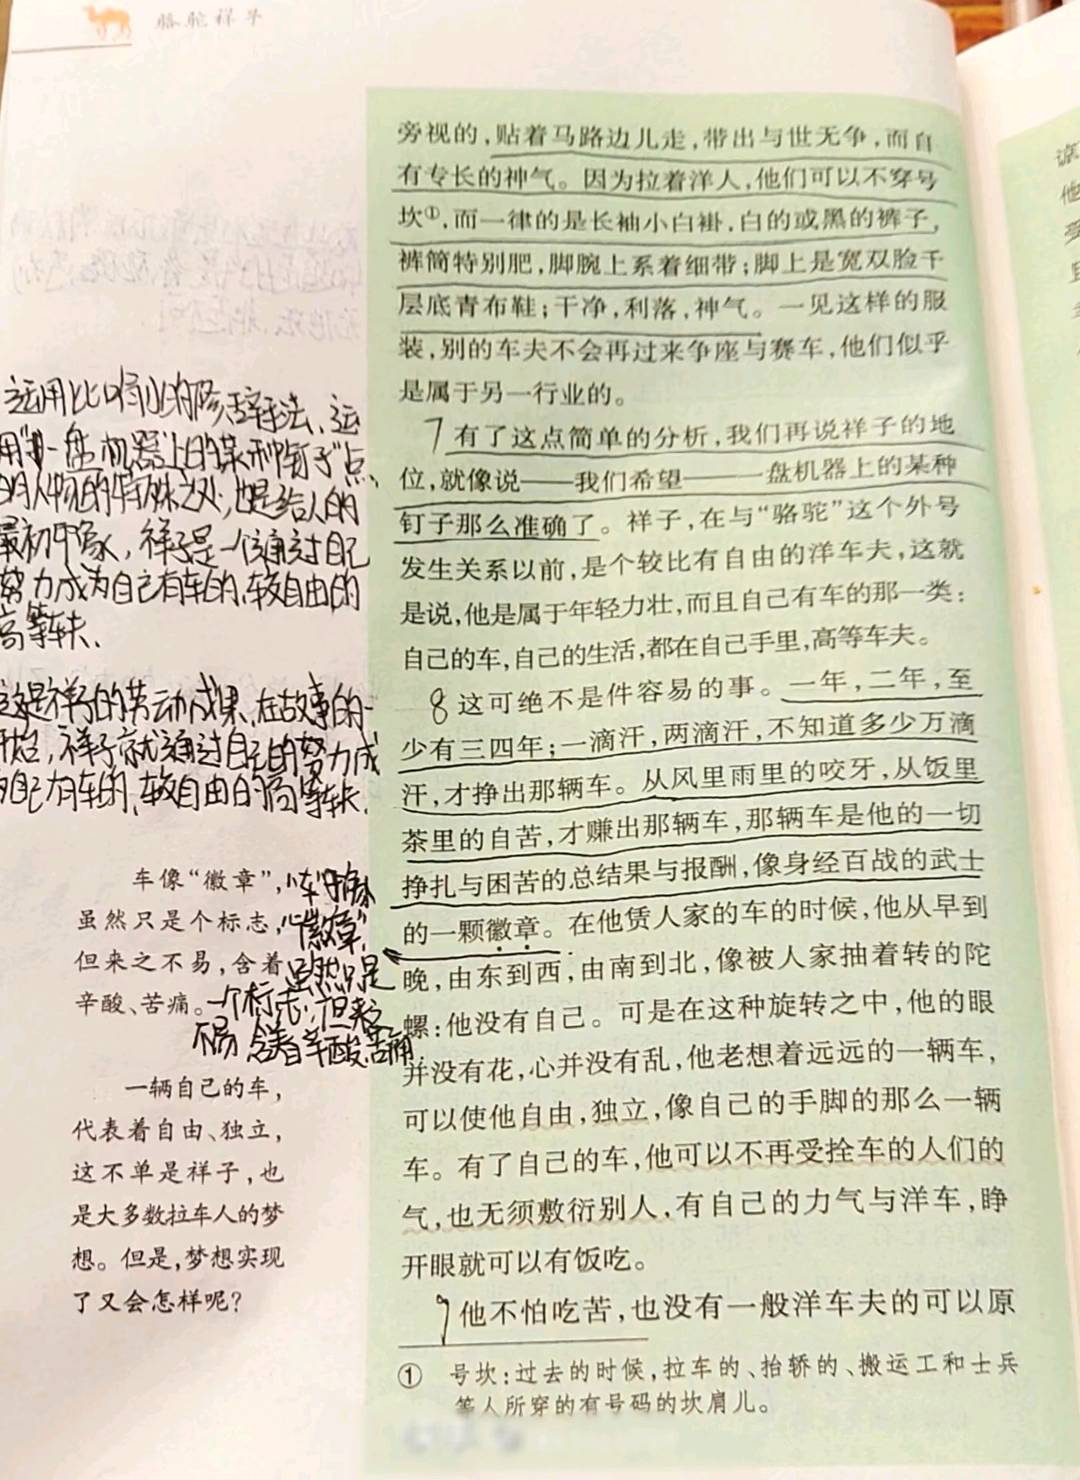 骆驼祥子
旁视的，贴着马路边儿走，带出与世无争，而自
有专长的神气。因为拉着洋人，他们可以不穿号
坎①，而一律的是长袖小白褂，白的或黑的裤子，
裤筒特别肥，脚腕上系着细带；脚上是宽双脸千
层底青布鞋；干净，利落，神气。一见这样的服
装，别的车夫不会再过来争座与赛车，他们似乎
是属于另一行业的。
7有了这点简单的分析，我们再说祥子的地
位，就像说——我们希望——一盘机器上的某种
钉子那么准确了。祥子，在与“骆驼”这个外号
发生关系以前，是个较比有自由的洋车夫，这就
是说，他是属于年轻力壮，而且自己有车的那一类：
自己的车，自己的生活，都在自己手里，高等车夫。
8这可绝不是件容易的事。一年，二年，至
少有三四年；一滴汗，两滴汗，不知道多少万滴
汗，才挣出那辆车。从风里雨里的咬牙，从饭里
茶里的自苦，才赚出那辆车，那辆车是他的一切
挣扎与困苦的总结果与报酬，像身经百战的武士
的一颗徽章。在他赁人家的车的时候，他从早到
晚，由东到西，由南到北，像被人家抽着转的陀
螺；他没有自己。可是在这种旋转之中，他的眼
并没有花，心并没有乱，他老想着远远的一辆车，
可以使他自由，独立，像自己的手脚的那么一辆
车。有了自己的车，他可以不再受拴车的人们的
气，也无须敷衍别人，有自己的力气与洋车，睁
开眼就可以有饭吃。
9他不怕吃苦，也没有一般洋车夫的可以原
①号坎：过去的时候，拉车的、抬轿的、搬运工和士兵
等人所穿的有号码的坎肩儿。
运用比喻的修辞手法、运
用“一盘机器上的某种钉子”点
的人物的特殊之处，也是给人的
最初印象，祥子是一个通过自己
努力成为自己有车的、较自由的
高等车夫.
这是祥子的劳动成果，在故事的一
开始，祥子就通过自己的努力成
为自己有车的、较自由的高等车夫.
车像“徽章”，
虽然只是个标志，
但来之不易，含着
辛酸、苦痛。
“车”像
“徽章”，
虽然只是
一个标志，但来之
不易 含着辛酸、苦痛
一辆自己的车，
代表着自由、独立，
这不单是祥子，也
是大多数拉车人的梦
想。但是，梦想实现
了又会怎样呢？